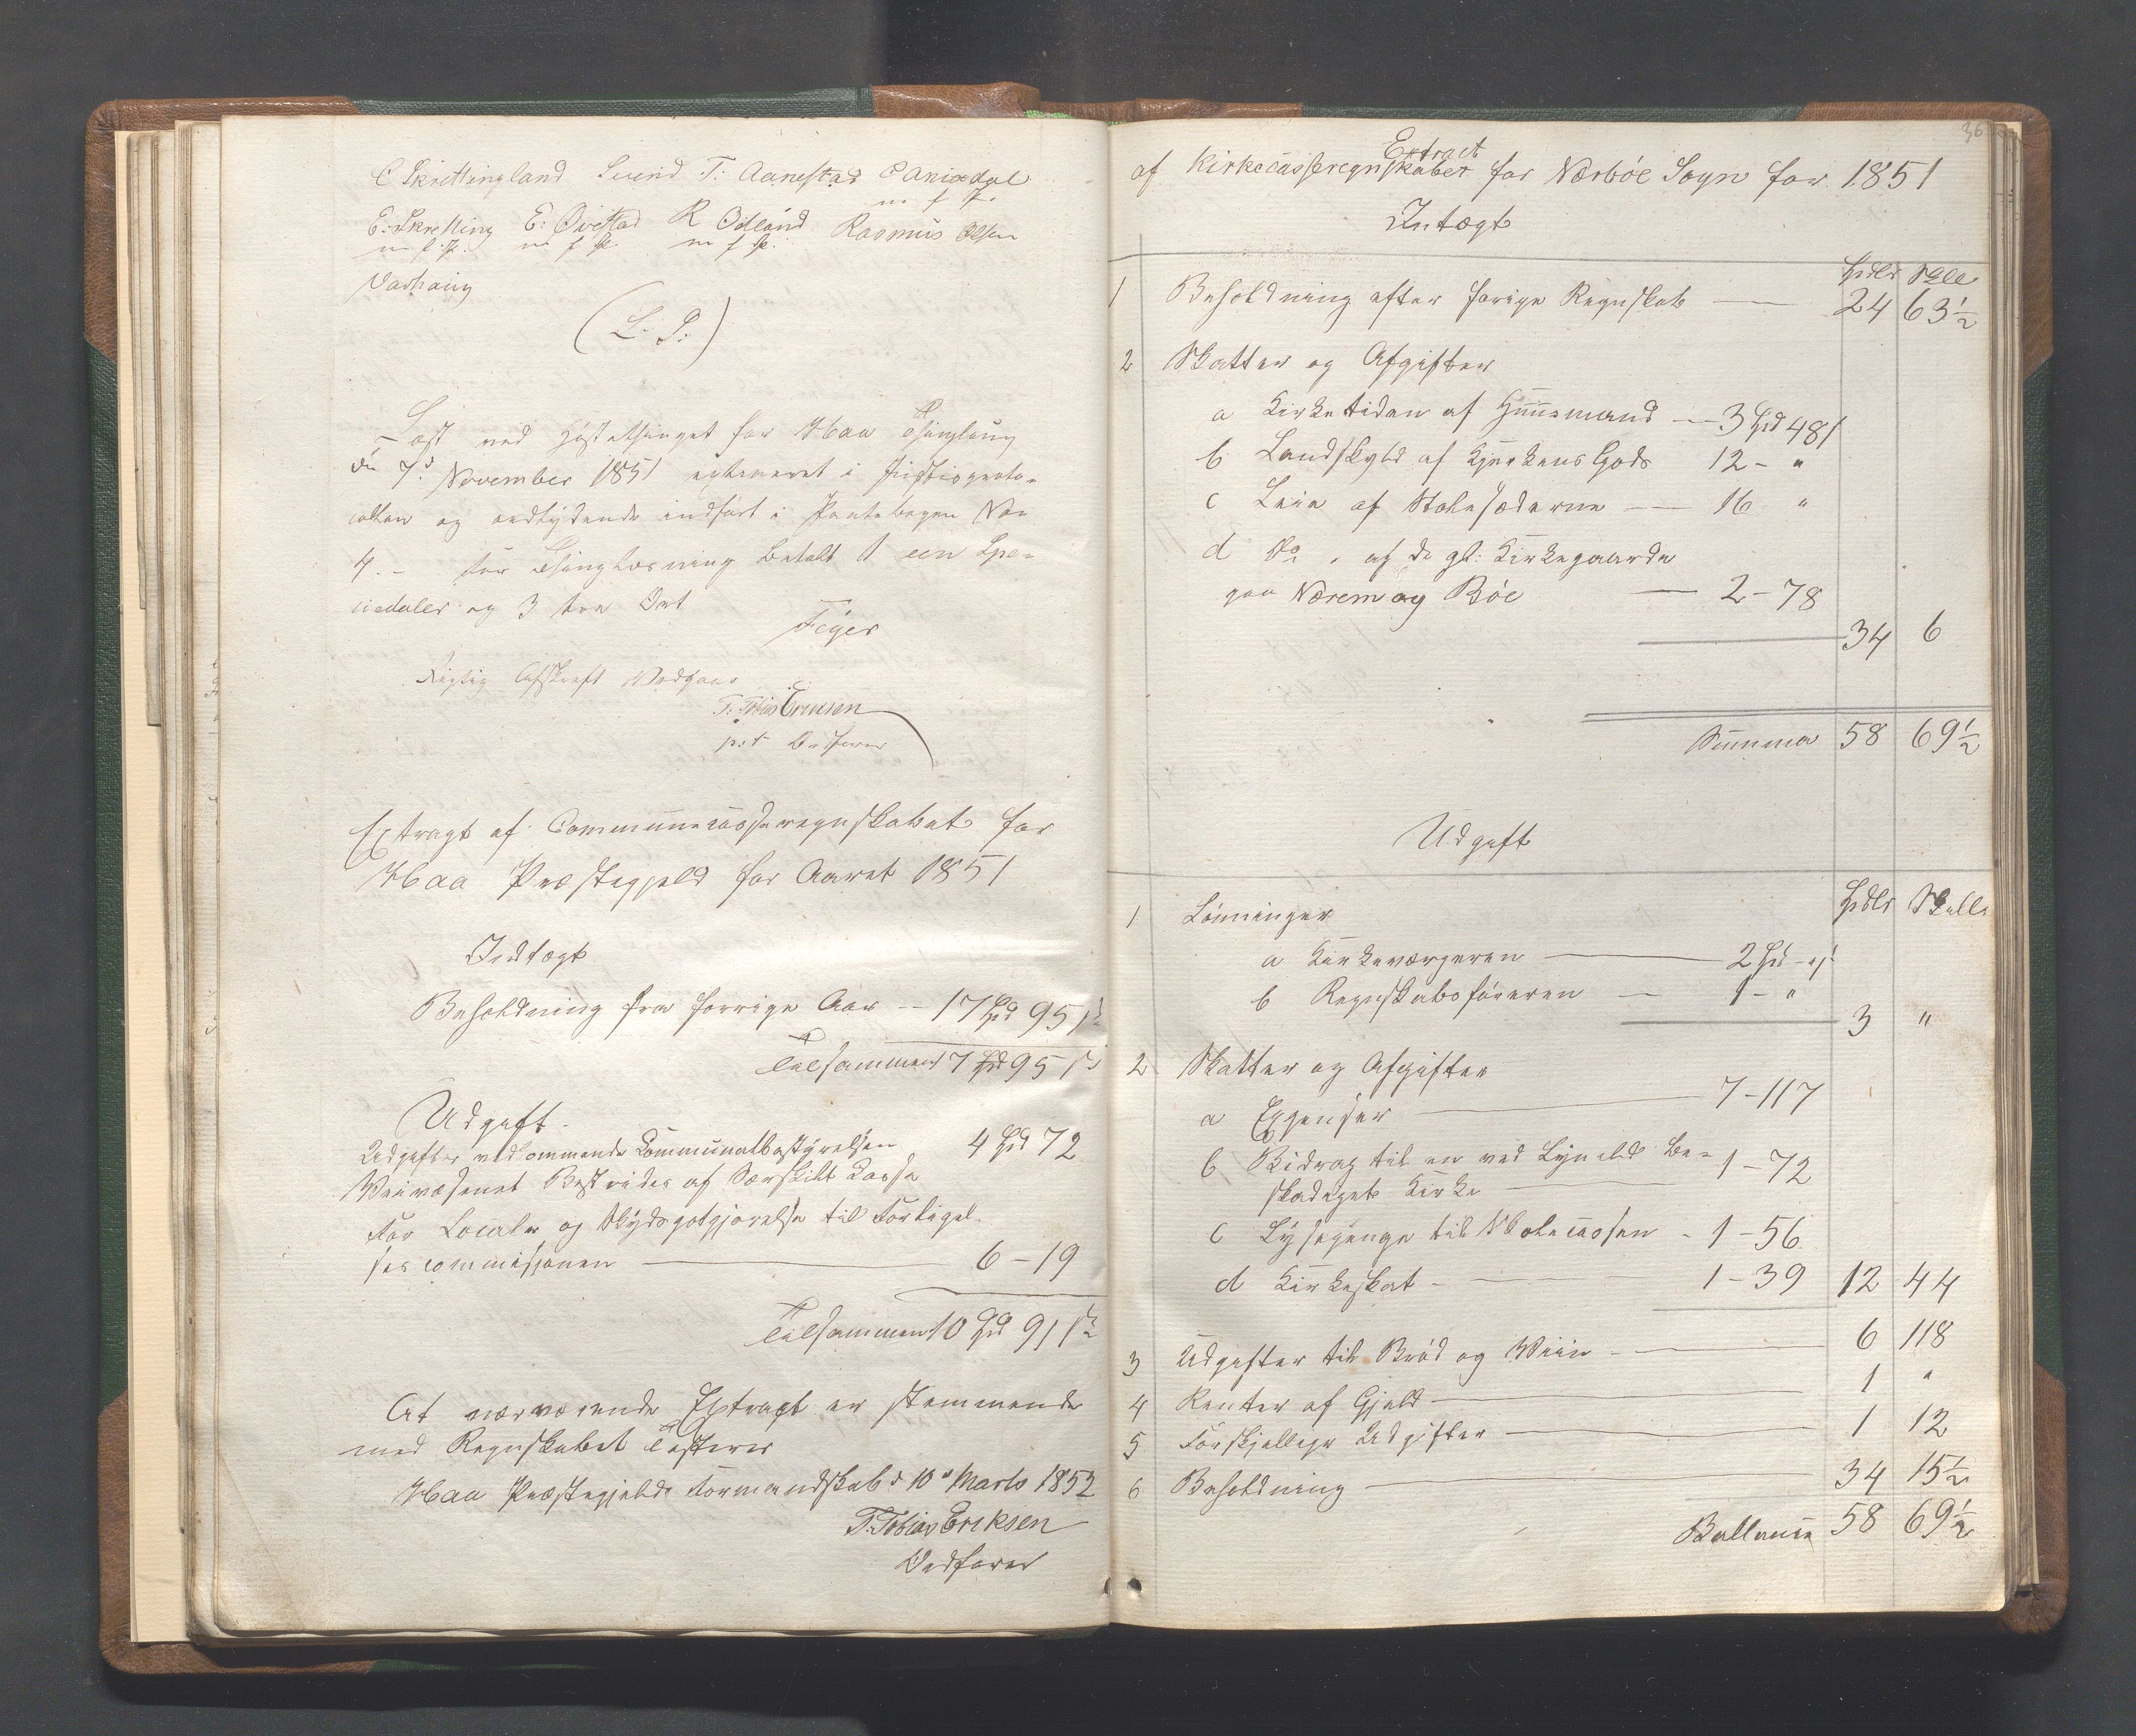 C Skrettingland Svend T: Aanestad
m f P.
E: Skretting E: Øvestad R Ødland Rasmus Olsen
m f P. m f P. m f P.
Varhaug
(L. S.)
Læst ved Høstethinget for Haa Thinglaug
den 7d November 1851 extraheret i Justisproto-
collen og ordlydende indført i Pantebogen No
4. – For Thinglæsning betalt 1 een Spe-
ciedaler og 3 tre Ort
Feyer
Rigtig Afskrift Vedgaaes
T. Tobias Eriksen
p: t Ordfører
Extragt af Communecasseregnskabet for
Haa Præstegjeld for Aaret 1851
Indtægt
Beholdning fra forrige Aar -- 17 Spd 95 s
Tilsammen 7 Spd 95 s
Udgift.
Udgifter vedkommende Communalbestyrelsen 4 Spd 72
Veivæsenet Bestrides af Særskilt Casse
For Locale og Skydsgodtgjørelse til Forligel-
sescommisjonen 6 – 19
Tilsammen 10 Spd 91 s
At nærværende Extragt er stemmende
med Regnskabet Testerer
Haa Præstegjelds Formandskab d 10d Marts 1852
T. Tobias Eriksen
Ordfører
36
Extract
af Kirkecasseregnskabet for Nærbøe Sogn for 1851
Intægt
Spdlr Skll
1 Beholdning efter forige Regnskab 24 63½
2 Skatter og Afgifter
a Kirketiden af Huusmænd — 3 Spd 48 s
b Landskyld af Kjerkens Gods 12 – "
c Leie af Stolesæderne — 16 "
d Do . af de gl: Kirkegaarde
paa Nærem og Bøe — 2 – 78
34 6
Summa 58 69½
Udgift
Spdlr Skill
1 Lønninger
a Kirkeværgeren — 2 Spd – " s
b Regnskabsføreren — 1 – "
3 "
2 Skatter og Afgifter
a Expenser 7 – 117
b Bidrag til en ved Lynild be- 1 – 72
skadiget Kirke
c Lysepenge til Skolecassen - 1 – 56
d Kirkeskat - 1 – 39 12 44
3 Udgifter til Brød og Viin - 6 118
4 Renter af Gjeld 1 "
5 Forskjellige Udgifter 1 12
6 Beholdning 34 15½
Ballance 58 69½